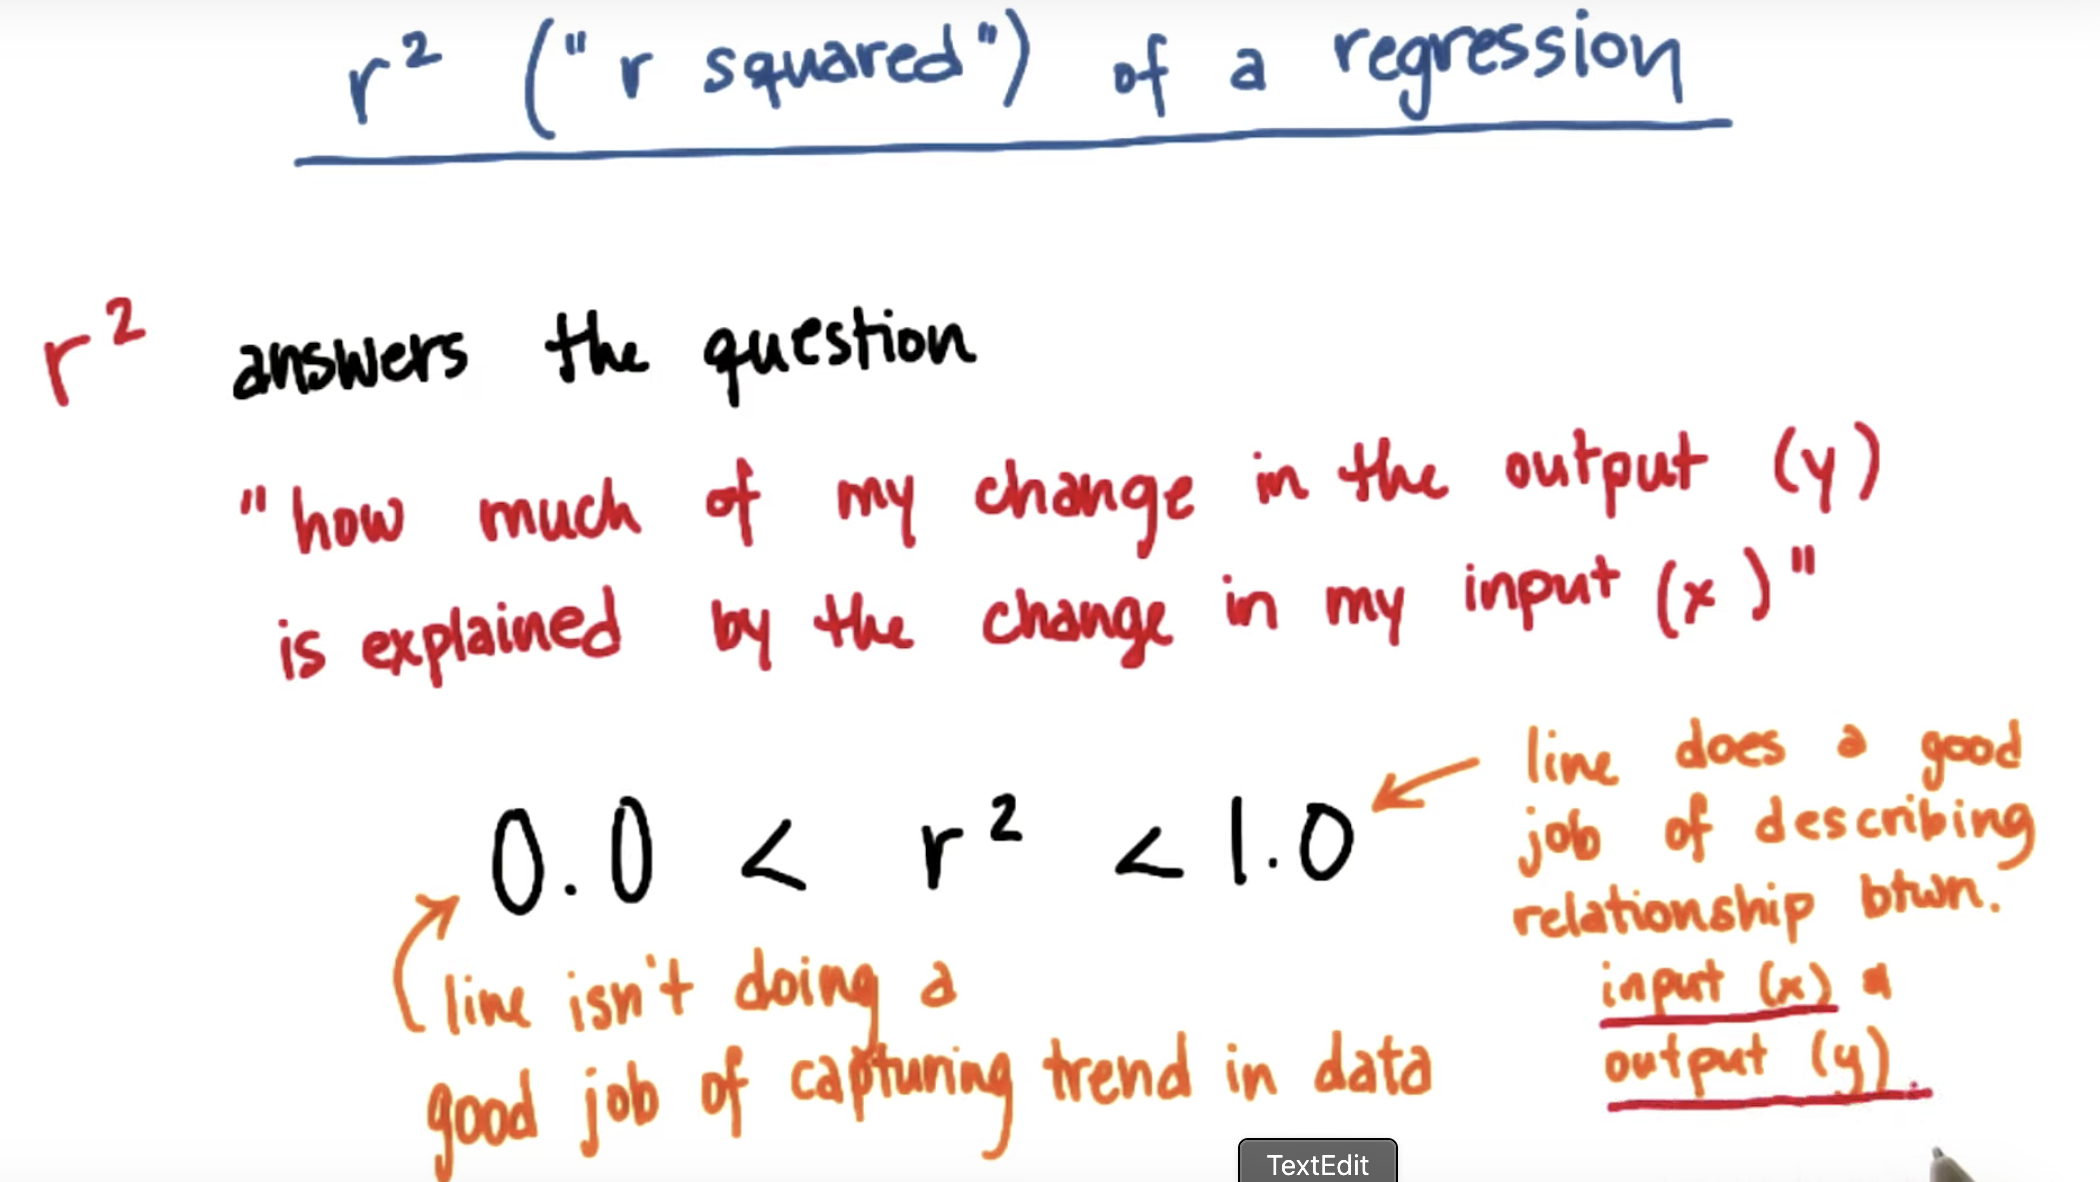 r² ("r squared") of a regression
r² answers the question
"how much of my change in the output (y)
is explained by the change in my input (x)"
0.0 < r² < 1.0
line does a good
job of describing
relationship btwn.
input (x) &
output (y).
line isn't doing a
good job of capturing trend in data
TextEdit